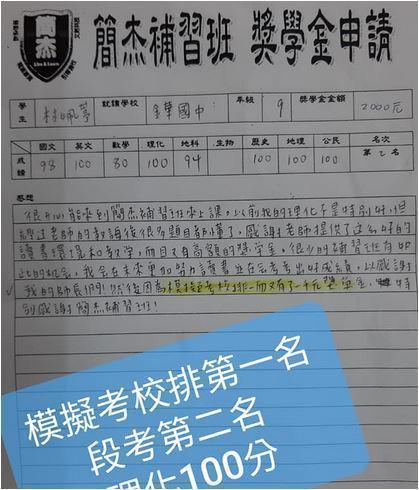 簡杰
Live & Learn
簡杰補習班 獎學金申請
學生 林佩蓉 就讀學校 金華國中 年級 9 獎學金金額 2000元
國文 英文 數學 理化 地科 生物 歷史 地理 公民 名次
成績 98 100 80 100 94 100 100 100 第2名
感想
很開心能來到簡杰補習班來上課，以前我的理化不是特別好，但
經過老師的教講後很多題目都懂了，感謝老師提供了這麼好的
讀書環境和教學，而且又有高額的獎學金，很少的補習班有如
此的機會，我會在未來更加努力讀書並在會考考出好成績，以感謝
我的師長們！然後因為模擬考校排一而又有了一千元獎學金，特
別感謝簡杰補習班！
模擬考校排第一名
段考第二名
理化100分